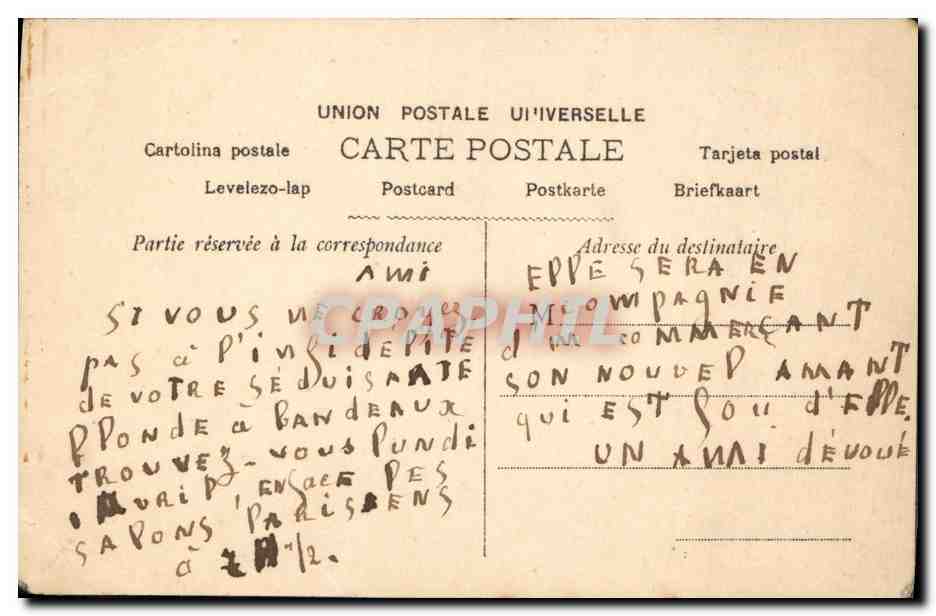 UNION POSTALE UNIVERSELLE
Cartolina postale CARTE POSTALE Tarjeta postal
Levelezo-lap Postcard Postkarte Briefkaart
Partie réservée à la correspondance
AMI
SI VOUS NE CROYEZ
pas à l'infidélité
de VOTRE SÉDUISANTE
BLONDE à BANDEAUX
TROUVEZ-VOUS lundi
AVRIL EN face les
SALONS PARISIENS
à 1/2.
Adresse du destinataire
ELLE SERA EN
M COMPAGNIE
d'un COMMERÇANT
SON NOUVEL AMANT
qui EST fou d'ELLE.
UN AMI dÉVOUÉ
CPAPHIL